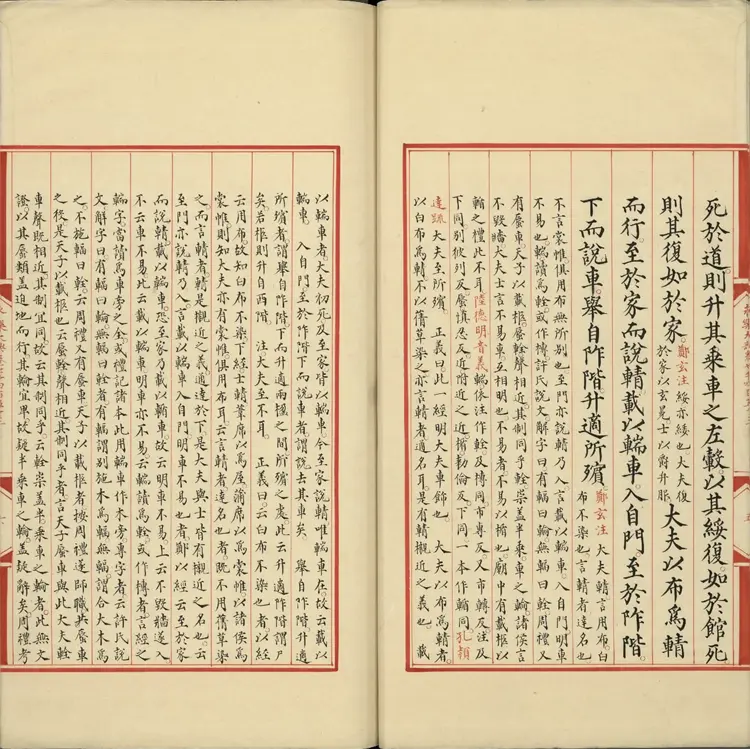 死於道則升其乘車之左轂以其綏復如於館死
則其復如於家 鄭玄注 綏亦緌也大夫復
於家以玄冕士以爵弁服 大夫以布為輤
而行至於家而說輤載以輲車入自門至於阼階
下而說車舉自阼階升適所殯 鄭玄注 大夫輤言用布白
布不染也言輤者達名也
不言裳帷俱用布無所別也至門亦說輤乃入言載以輲車入自門明車
不易也輲讀為輇或作槫許氏說文解字曰有輻曰輪無輻曰輇周禮又
有蜃車天子以載柩蜃輇聲相近其制同乎輇崇蓋半乘車之輪諸侯言
不毀牆大夫士言不易車互相明也不易者不易以楯也廟中有載柩以
輴之禮此不耳陸德明音義輲依注作輇及槫同市專反又市轉反注及
下同別彼列反蜃慎忍反近附近之近楯勅倫反下同一本作輴同孔穎
達疏大夫至所殯 正義曰此一經明大夫車飾也 大夫以布為輤者
以白布為輤不以蒨草染之亦言輤者達名耳是有輤襯近之義也 載
以輲車者大夫初死及至家皆以輲車今至家說輤唯輲車在故云載以
輲車 入自門至於阼階下而說車者謂說去其車矣 舉自阼階升適
所殯者謂舉自阼階下而升適兩楹之間所殯之處此云升適阼階謂尸
矣若柩則升自西階 注大夫至不耳 正義曰云白布不染也者以經
云用布故知白布不染下經士輤葦席以為屋蒲席以為裳帷以諸侯為
裳帷則知大夫亦有裳帷俱用布耳云言輤者達名也者既不用蒨草染
之而言輤者輤是襯近之義通達於下是大夫與士皆有襯近之名也云
至門亦說輤乃入言載以輲車入自門明車不易也者鄭以經云至於家
而說輤載以輲車恐至家乃載以輲車故云明車不易上云不毀牆遂入
不云車不易此云載以輲車明車亦不易云輲讀為輇或作槫者言經之
輲字當讀為車旁之全或禮記諸本此用輲車作木旁專字者云許氏說
文解字曰有輻曰輪無輻曰輇者有輻謂別施木為輻無輻謂合大木為
之不施輻曰輇云周禮又有蜃車天子以載柩者按周禮遂師職共蜃車
之役是天子以載柩也云蜃輇聲相近其制同乎者言天子蜃車與此大夫輇
車聲既相近其制宜同故云其制同乎云輇崇蓋半乘車之輪者此無文
證以其蜃類蓋迫地而行其輪宜卑故疑半乘車之輪蓋疑辭矣周禮考